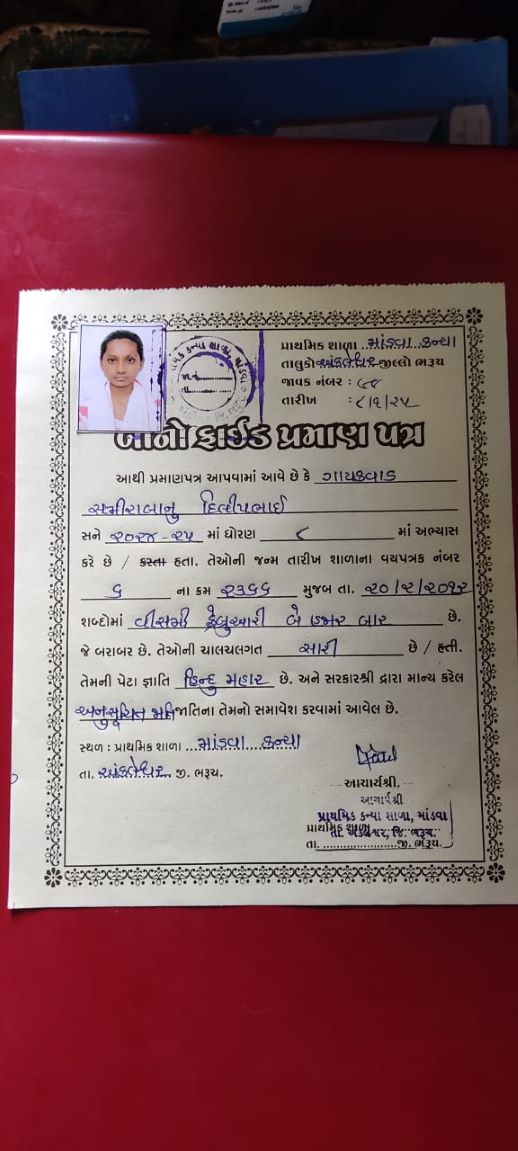 પ્રાથમિક શાળા ..માંડવા..કન્યા
તાલુકો અંકલેશ્વર જીલ્લો ભરૂચ
જાવક નંબર :
તારીખ : ૮/૧/૨૫
બોનોફાઈડ પ્રમાણ પત્ર
આથી પ્રમાણપત્ર આપવામાં આવે છે કે ગાયકવાડ
સમીરાબાનુ દિલીપભાઈ
સને ૨૦૨૪-૨૫ માં ધોરણ ૮ માં અભ્યાસ
કરે છે / કરતા હતા. તેઓની જન્મ તારીખ શાળાના વયપત્રક નંબર
૬ ના ક્રમ ૨૩૬૬ મુજબ તા. ૨૦/૨/૨૦૧૨
શબ્દોમાં વીસમી ફેબ્રુઆરી બે હજાર બાર છે.
જે બરાબર છે. તેઓની ચાલચલગત સારી છે / હતી.
તેમની પેટા જ્ઞાતિ હિન્દુ મહાર છે. અને સરકારશ્રી દ્વારા માન્ય કરેલ
અનુસૂચિત જાતિના તેમનો સમાવેશ કરવામાં આવેલ છે.
સ્થળ : પ્રાથમિક શાળા ...માંડવા...કન્યા
તા. અંકલેશ્વર. જી. ભરૂચ.
આચાર્યશ્રી,
આચાર્યશ્રી
પ્રાથમિક કન્યા શાળા, માંડવા
પ્રાથમિક શાળા
તા. અંકલેશ્વર, જિ. ભરૂચ.
તા. ......................જી. ભરૂચ.